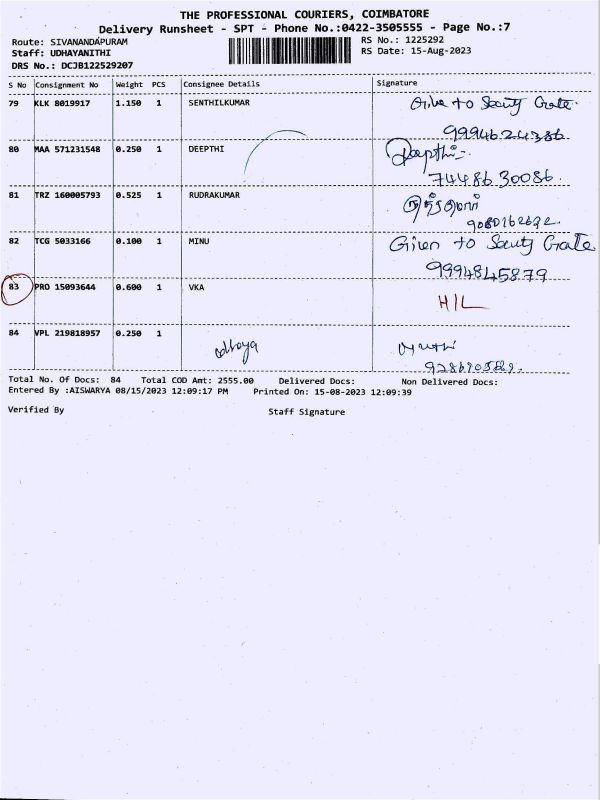 THE PROFESSIONAL COURIERS, COIMBATORE
Delivery Runsheet - SPT - Phone No.:0422-3505555 - Page No.:7
Route: SIVANANDAPURAM
RS No.: 1225292
Staff: UDHAYANITHI
RS Date: 15-Aug-2023
DRS No.: DCJB122529207
S No Consignment No Weight PCS Consignee Details Signature
79 KLK 8019917 1.150 1 SENTHILKUMAR Give to Scuty Gate.
9994624386
80 MAA 571231548 0.250 1 DEEPTHI Deepthi
74486 30086.
81 TRZ 160005793 0.525 1 RUDRAKUMAR
9080162692.
82 TCG 5033166 0.100 1 MINU Given to Scuty Gate
9994845879
83 PRO 15093644 0.600 1 VKA H/L
84 VPL 219818957 0.250 1
Total No. Of Docs: 84 Total COD Amt: 2555.00 Delivered Docs: Non Delivered Docs:
Entered By :AISWARYA 08/15/2023 12:09:17 PM Printed On: 15-08-2023 12:09:39
Verified By Staff Signature